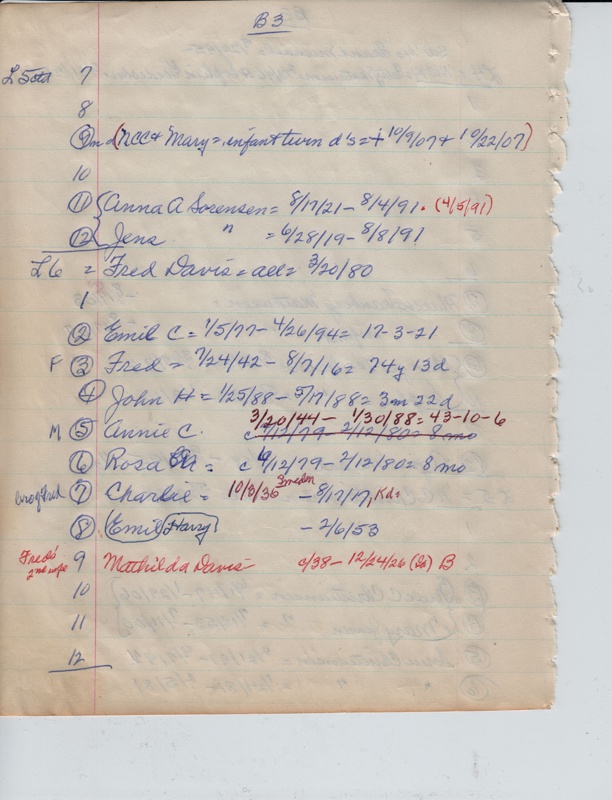 B3
L5 7
8
9 (NCC & Mary = infant twin d's = + 10/9/07 + 10/22/07)
10
11 { Anna A Sorensen = 8/17/21 - 8/4/91 . (4/5/91)
12 { Jens " = 6/28/19 - 8/8/91
L6 = Fred Davis = all = 3/20/80
1
2 Emil C = 1/5/77 - 4/26/94 = 17-3-21
F 3 Fred = 7/24/42 - 8/7/16 = 74y 13d
4 John H = 1/25/88 - 5/17/88 = 3m 22d
3/20/44 - 1/30/88 = 43-10-6
M 5 Annie C. c 4/12/79 2/12/80 = 8 mo
6 Rosa = c 4/12/79 - 2/12/80 = 8 mo
bro of Fred 7 Charlie = 10/8/36 Sweden - 8/12/17, Kd =
8 (Emil Harry - 2/6/53
Fred's 2nd wife 9 Mathilda Davis c/38 - 12/24/26 B
10
11
12